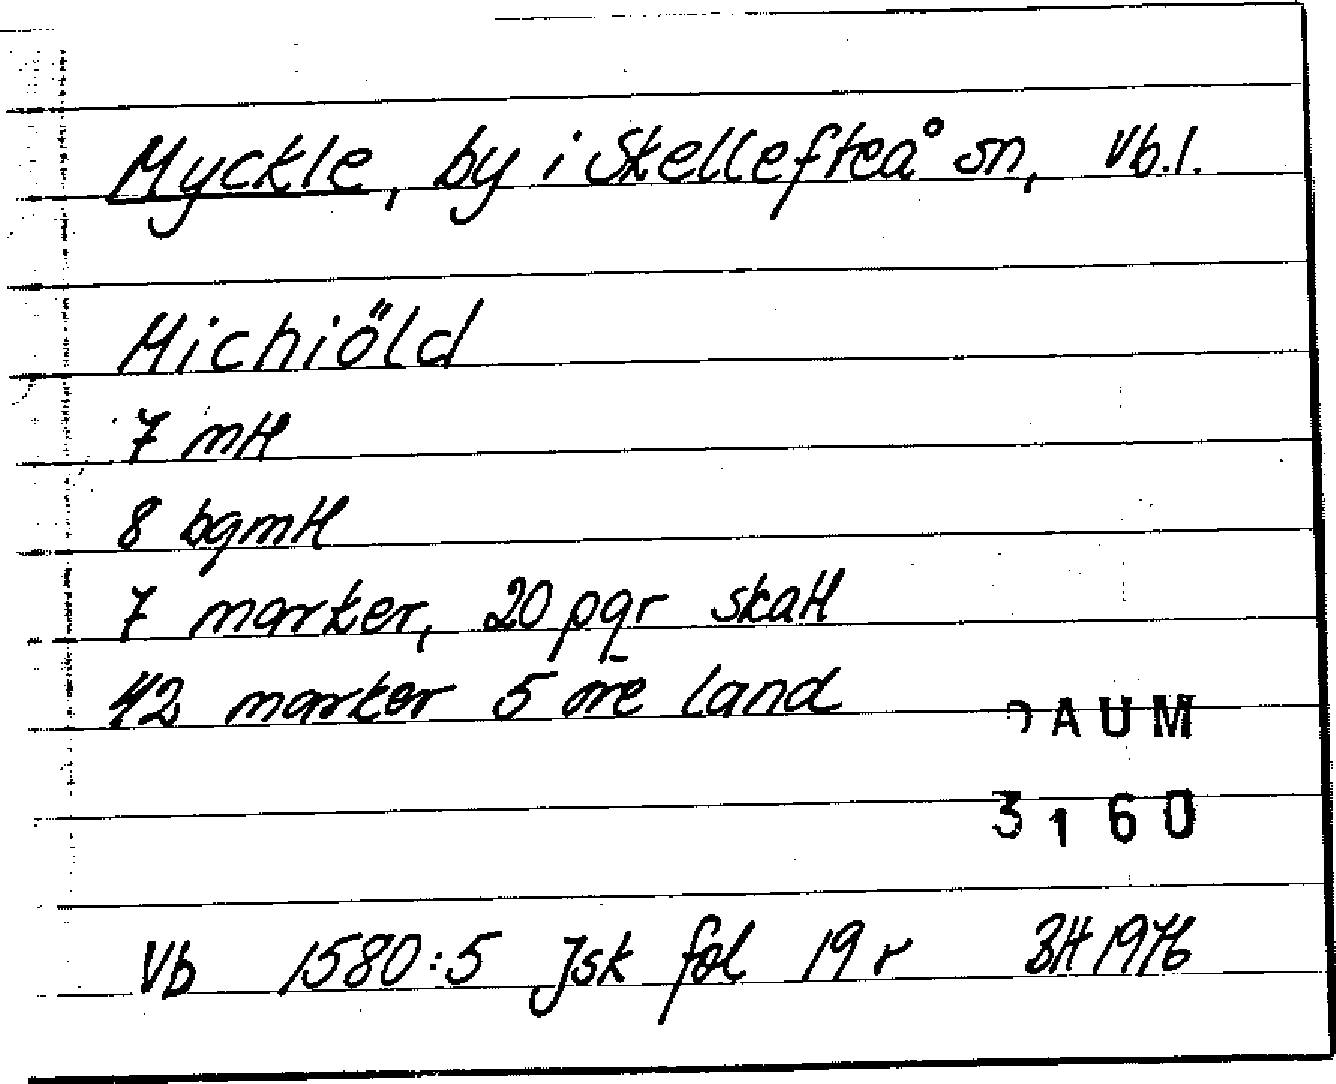 Myckle, by i Skellefteå sn, Vb.l.
Michiöld
7 mtl
8 bgmtl
7 marker, 20 pgr skatt
42 marker 5 öre land
DAUM
3160
Vb 1580:5 Jsk fol 19 r BH 1976